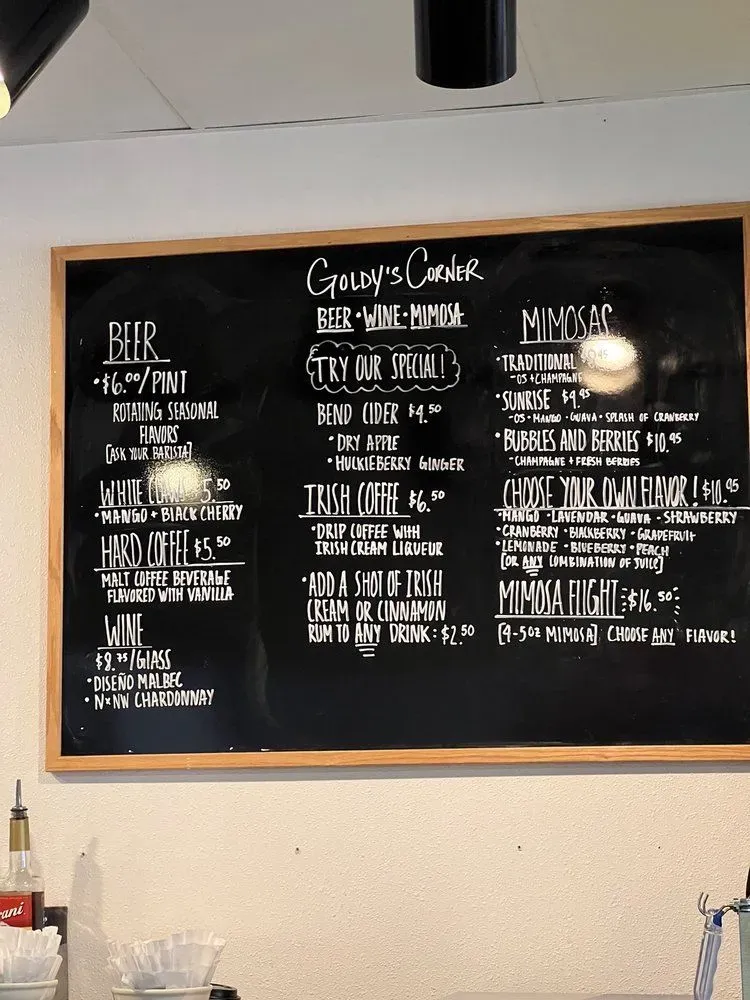 GOLDY'S CORNER
BEER • WINE • MIMOSA
BEER
• $6.00/PINT
ROTATING SEASONAL
FLAVORS
[ASK YOUR BARISTA]
WHITE 5.50
• MANGO + BLACK CHERRY
HARD COFFEE $5.50
MALT COFFEE BEVERAGE
FLAVORED WITH VANILLA
WINE
$8.75/GLASS
• DISEÑO MALBEC
• N×NW CHARDONNAY
TRY OUR SPECIAL!
BEND CIDER $4.50
• DRY APPLE
• HUCKLEBERRY GINGER
IRISH COFFEE $6.50
• DRIP COFFEE WITH
IRISH CREAM LIQUEUR
• ADD A SHOT OF IRISH
CREAM OR CINNAMON
RUM TO ANY DRINK: $2.50
MIMOSAS
• TRADITIONAL
- OJ + CHAMPAGNE
• SUNRISE $9.95
- OJ • MANGO • GUAVA • SPLASH OF CRANBERRY
• BUBBLES AND BERRIES $10.95
- CHAMPAGNE + FRESH BERRIES
CHOOSE YOUR OWN FLAVOR! $10.95
• MANGO • LAVENDAR • GUAVA • STRAWBERRY
• CRANBERRY • BLACKBERRY • GRAPEFRUIT
• LEMONADE • BLUEBERRY • PEACH
[OR ANY COMBINATION OF JUICE]
MIMOSA FLIGHT $16.50
[4-5OZ MIMOSA] CHOOSE ANY FLAVOR!
ani